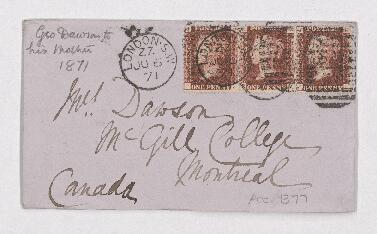 Geo Dawson to
his Mother
1871
LONDON·S.W
ZZ
JU 6
71
ONE PENNY
ONE PENNY
ONE PENNY
Mrs Dawson
McGill College
Montreal
Canada